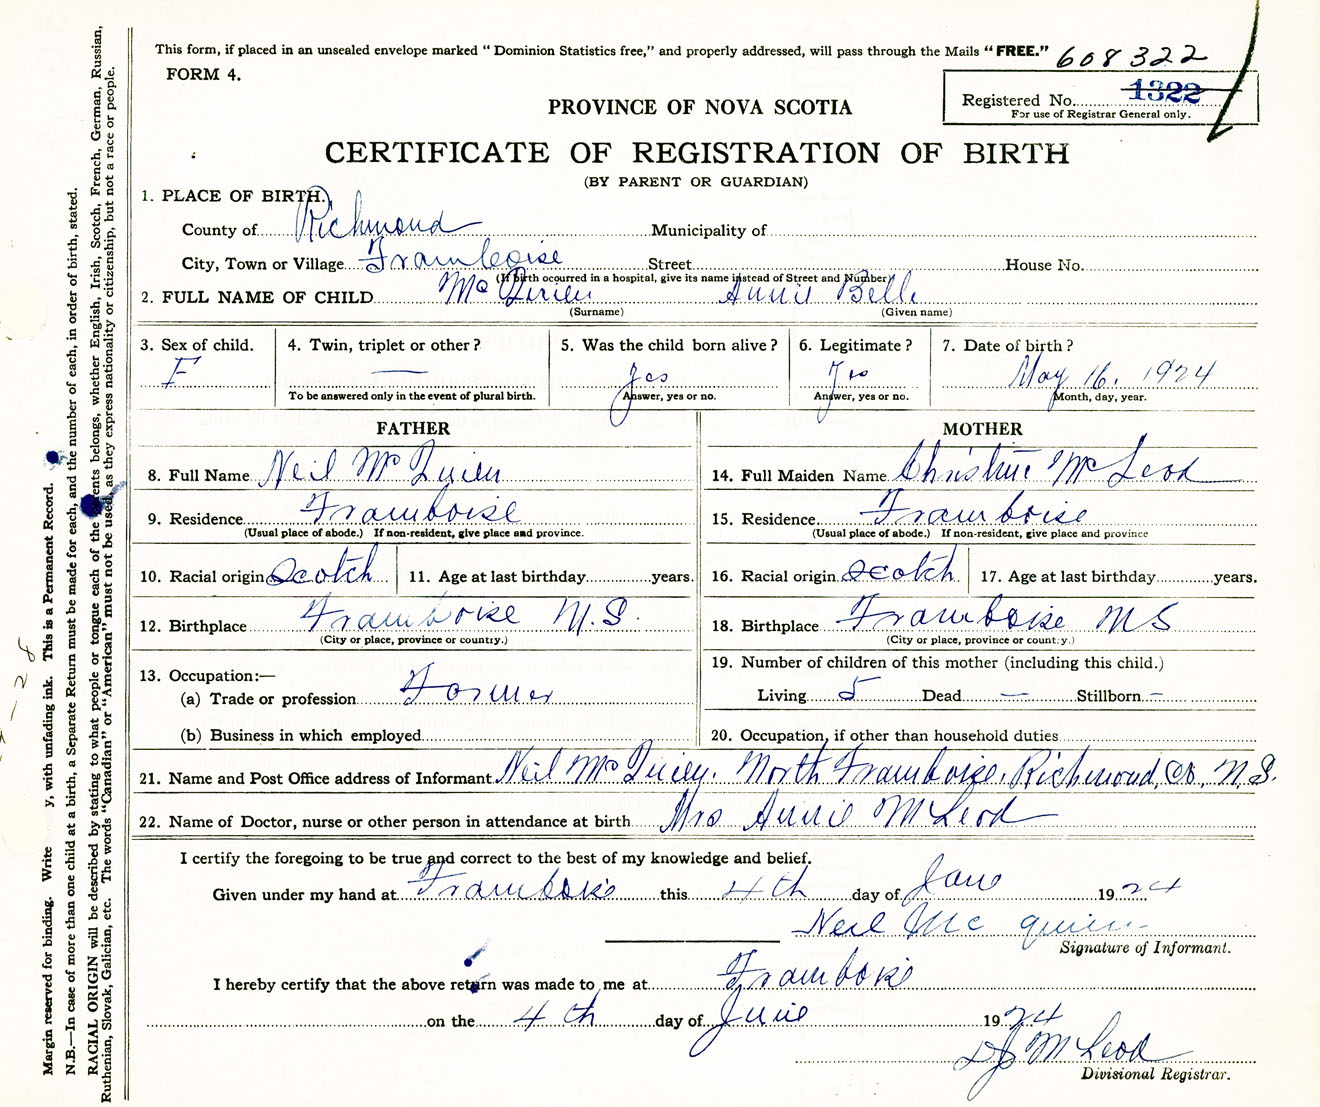 This form, if placed in an unsealed envelope marked “Dominion Statistics free,” and properly addressed, will pass through the Mails “FREE.” 608322
FORM 4.
Registered No. 1322
For use of Registrar General only.
PROVINCE OF NOVA SCOTIA
CERTIFICATE OF REGISTRATION OF BIRTH
(BY PARENT OR GUARDIAN)
1. PLACE OF BIRTH.
County of Richmond Municipality of
City, Town or Village Framboise Street House No.
(If birth occurred in a hospital, give its name instead of Street and Number)
2. FULL NAME OF CHILD McQuien Annie Belle
(Surname) (Given name)
3. Sex of child. 4. Twin, triplet or other? 5. Was the child born alive? 6. Legitimate? 7. Date of birth?
F — Yes Yes May 16. 1924
To be answered only in the event of plural birth. Answer, yes or no. Answer, yes or no. Month, day, year.
FATHER
8. Full Name Neil McQuien
9. Residence Framboise
(Usual place of abode.) If non-resident, give place and province.
10. Racial origin Scotch 11. Age at last birthday years.
12. Birthplace Framboise N.S.
(City or place, province or country.)
13. Occupation:—
(a) Trade or profession Farmer
(b) Business in which employed
MOTHER
14. Full Maiden Name Christine McLeod
15. Residence Framboise
(Usual place of abode.) If non-resident, give place and province
16. Racial origin Scotch 17. Age at last birthday years.
18. Birthplace Framboise NS
(City or place, province or country.)
19. Number of children of this mother (including this child.)
Living 5 Dead — Stillborn —
20. Occupation, if other than household duties
21. Name and Post Office address of Informant Neil McQuien, North Framboise, Richmond, Co., N.S.
22. Name of Doctor, nurse or other person in attendance at birth Mrs Annie McLeod
I certify the foregoing to be true and correct to the best of my knowledge and belief.
Given under my hand at Framboise this 4th day of June 1924
Neil Mc Quien
Signature of Informant.
I hereby certify that the above return was made to me at Framboise
on the 4th day of June 1924
DJ McLeod
Divisional Registrar.
Margin reserved for binding. Write y, with unfading ink. This is a Permanent Record.
N.B.—In case of more than one child at a birth, a Separate Return must be made for each, and the number of each, in order of birth, stated.
RACIAL ORIGIN will be described by stating to what people or tongue each of the parents belongs, whether English, Irish, Scotch, French, German, Russian,
Ruthenian, Slovak, Galician, etc. The words “Canadian” or “American” must not be used, as they express nationality or citizenship, but not a race or people.